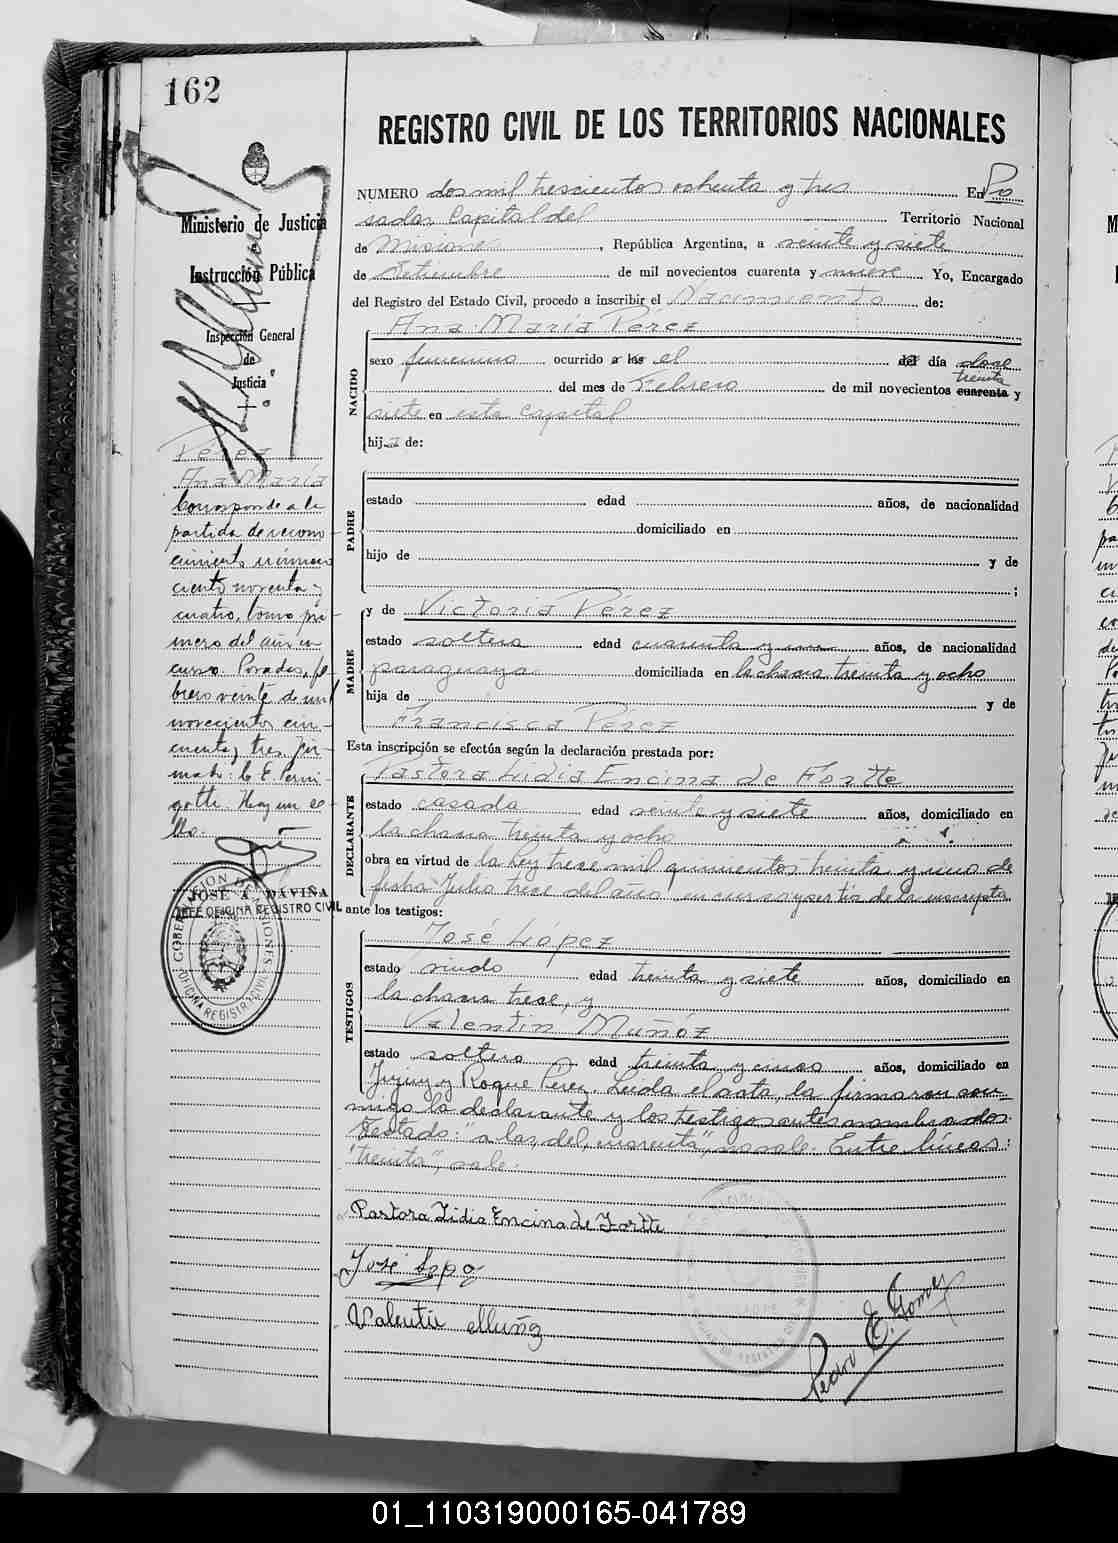 162
REGISTRO CIVIL DE LOS TERRITORIOS NACIONALES
Ministerio de Justicia
e
Instrucción Pública
Inspección General
de
Justicia
NUMERO dos mil trescientos ochenta y tres En Po
sadas Capital del Territorio Nacional
de Misiones, República Argentina, a veinte y siete
de Setiembre de mil novecientos cuarenta y nueve Yo, Encargado
del Registro del Estado Civil, procedo a inscribir el Nacimiento de:
NACIDO
Ana María Pérez
sexo femenino ocurrido a las el del día doce
treinta
del mes de Febrero de mil novecientos cuarenta y
siete en esta capital
hija de:
PADRE
estado edad años, de nacionalidad
domiciliado en
hijo de y de
;
MADRE
y de Victoria Pérez
estado soltera edad cuarenta y años, de nacionalidad
paraguaya domiciliada en la chacra treinta y ocho
hija de y de
Francisca Pérez
Esta inscripción se efectúa según la declaración prestada por:
DECLARANTE
Pastora Lidia Encina de Fortte
estado casada edad veinte y siete años, domiciliado en
la chacra treinta y ocho
obra en virtud de la Ley trece mil quinientos treinta y uno de
fecha Julio trece del año en curso y ser tía de la inscripta
ante los testigos:
TESTIGOS
José López
estado viudo edad treinta y siete años, domiciliado en
la chacra trece, y
Valentín Muñóz
estado soltero edad treinta y cinco años, domiciliado en
Jujuy y Roque Pérez. Leída el acta, la firmaron con-
migo la declarante y los testigos antes nombrados.
Testado: "a las, del, cuarenta", no vale. Entre líneas:
"treinta", vale.
Pastora Lidia Encina de Fortte
José Lopez
Valentin Muñoz
Pedro E. Gomez
Pérez
Ana María
Corresponde a la
partida de recono
cimiento número
ciento noventa y
cuatro, tomo pri
mero del año en
curso. Posadas, fe
brero veinte de mil
novecientos cin-
cuenta y tres. Fir-
mado: C. E.
Hay un se
llo.
JOSE A. DAVIÑA
JEFE OFICINA REGISTRO CIVIL
GOBERNACION DE MISIONES
OFICINA REGISTRO CIVIL
01_110319000165-041789